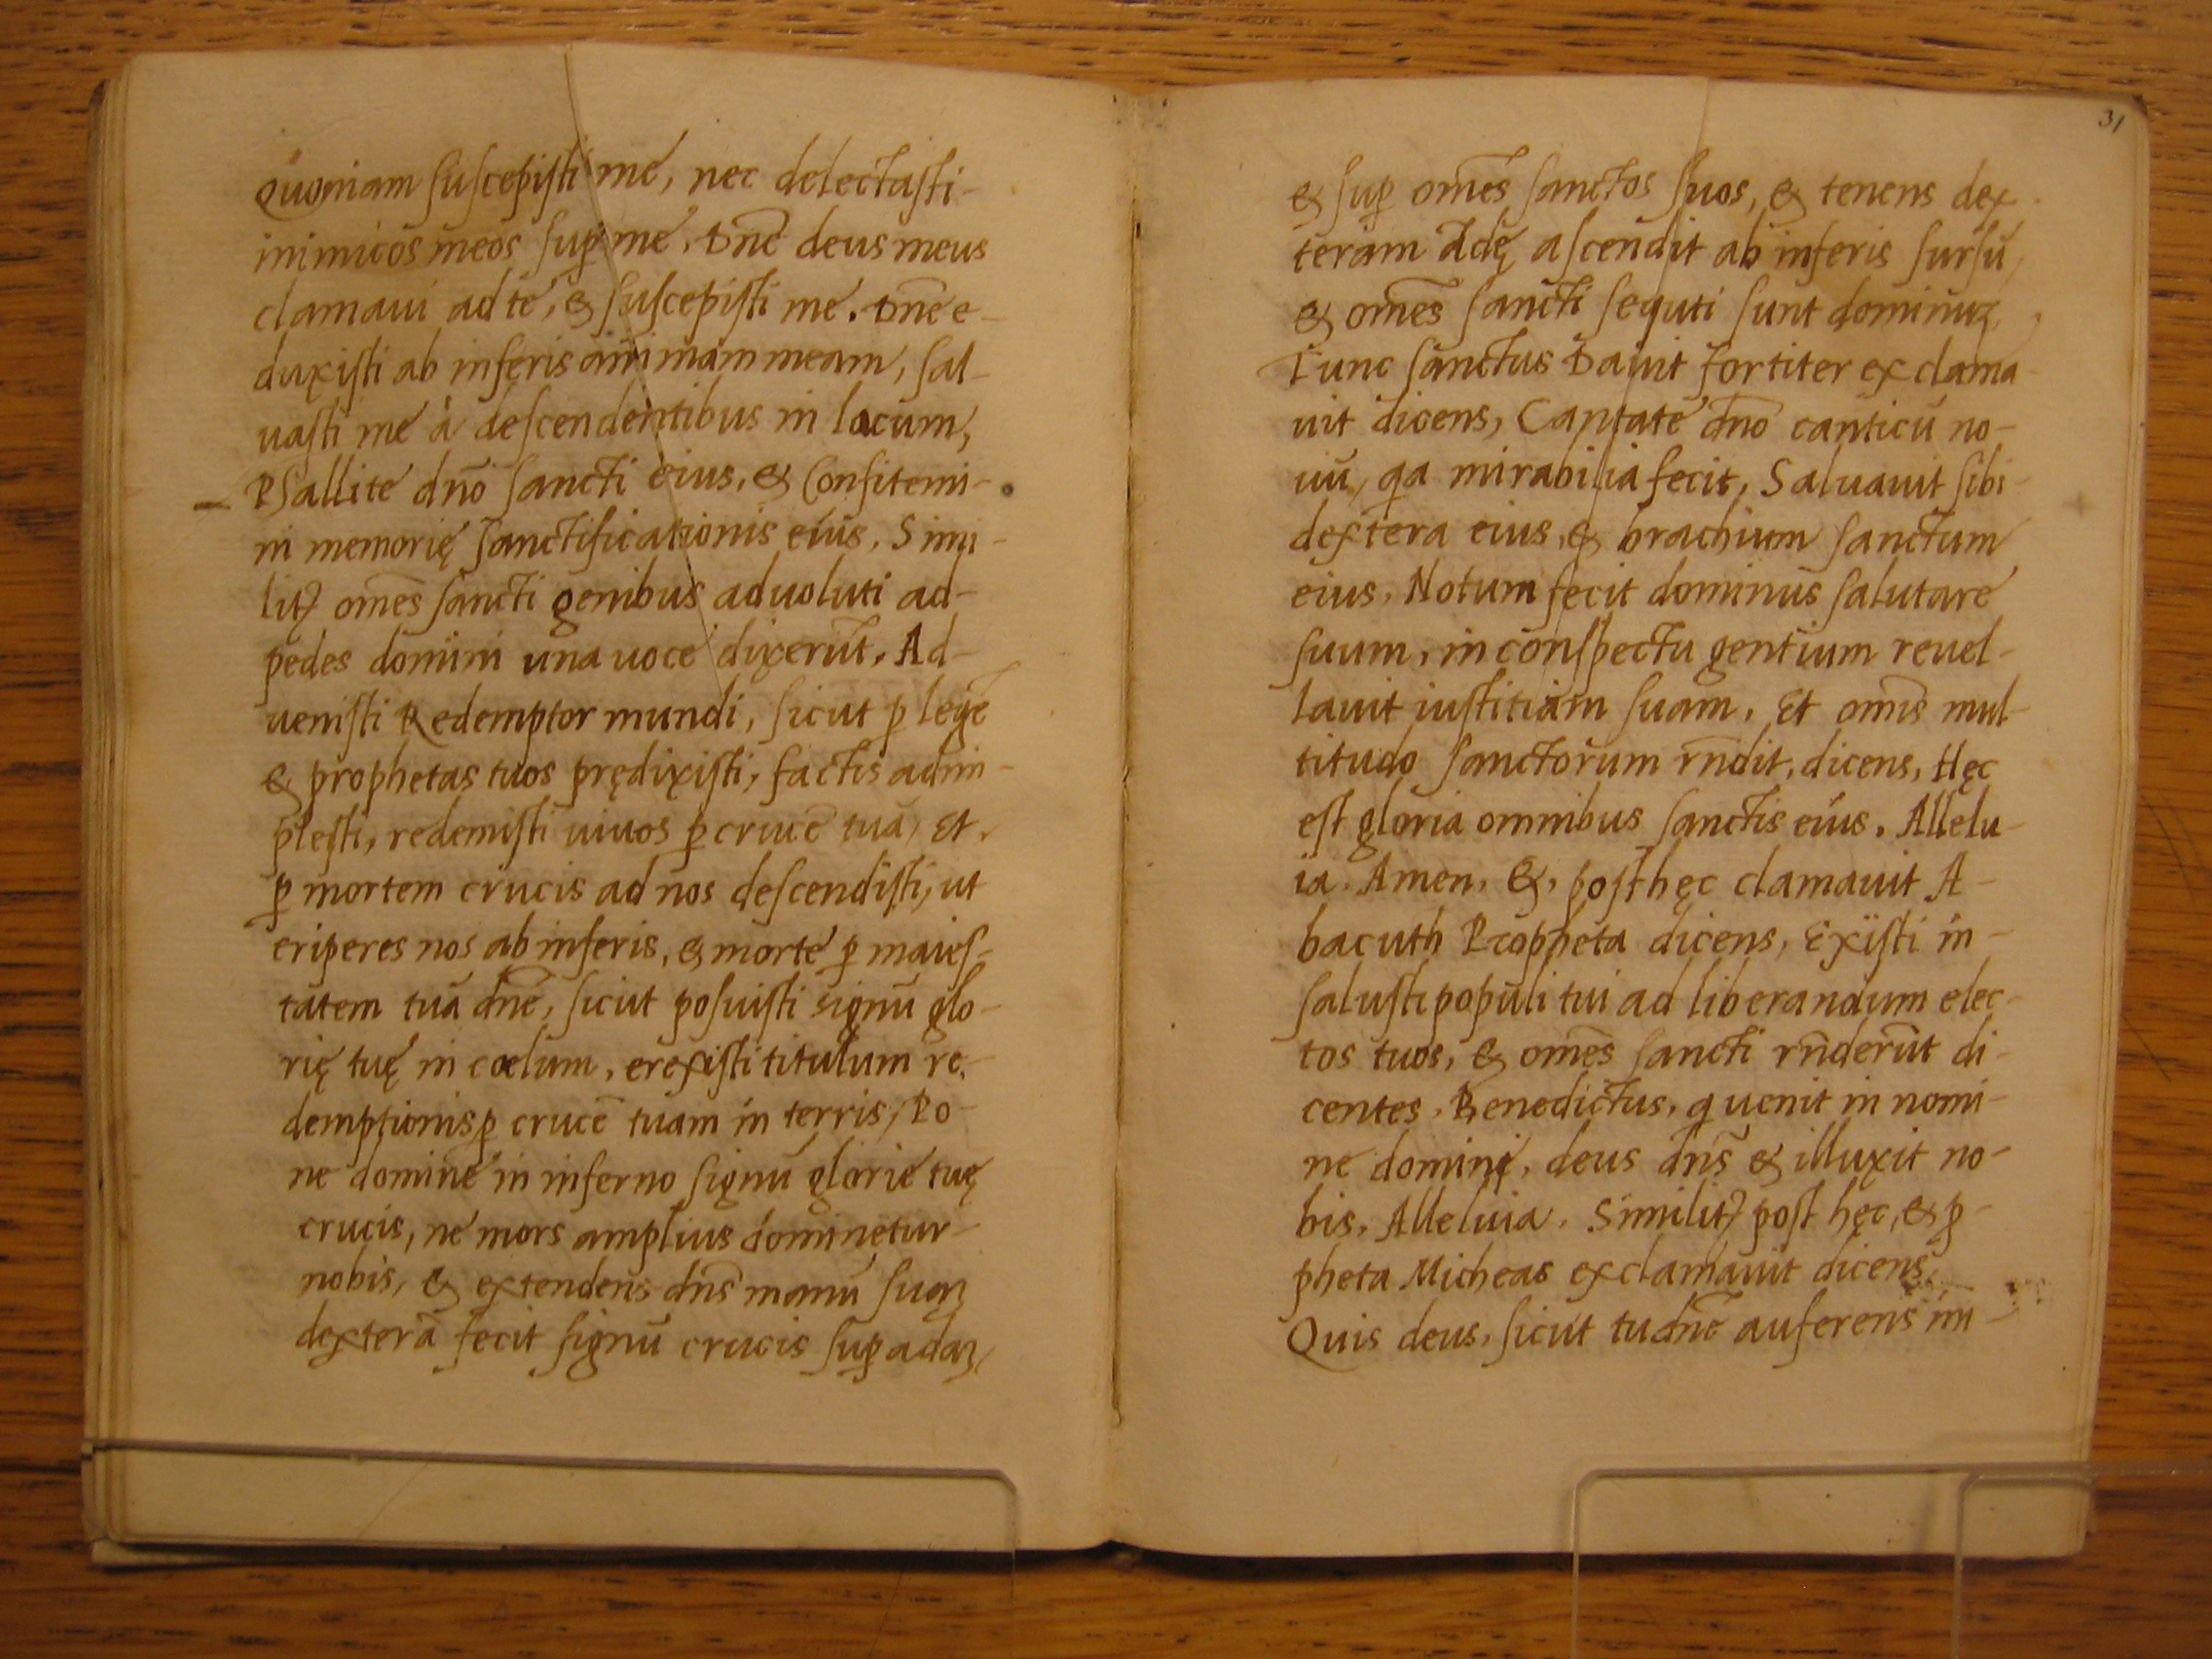 Quoniam suscepisti me, nec delectasti-
inimicos meos sup̱ me. Dn̄e deus meus
clamaui ad te, & suscepisti me. Dn̄e e-
duxisti ab inferis animam meam, sal-
uasti me à descendentibus in lacum,
Psallite dn̄o sancti eius, & Confitemi-
ni memorię sanctificationis eius. Simi-
lit̛ om̄es sancti genibus aduoluti ad-
pedes domini una uoce dixerūt. Ad-
uenisti Redemptor mundi, sicut ꝑ legē
& prophetas tuos prędixisti, factis adim-
plesti, redemisti uiuos ꝑ crucē tuā, Et.
ꝑ mortem crucis ad nos descendisti, ut
eriperes nos ab inferis, & morte ꝑ maies-
tatem tuā dn̄e, sicut posuisti signū glo-
rię tuę in cœlum, erexisti titulum re-
demptionis ꝑ crucē tuam in terris, Po-
ne domine in inferno signū glorie tuę
crucis, ne mors amplius dominetur-
nobis, & extendens dn̄s manū suaȝ
dexterā fecit signū crucis suꝑ adaȝ,
31
& suꝑ om̄es sanctos suos, & tenens dex-
teram Adę ascendit ab inferis sursū,
& om̄es sancti sequti sunt dominuȝ,
Tunc sanctus Dauit fortiter exclama-
uit dicens, Cantate dn̄o canticū no-
uū, qa mirabilia fecit, Saluauit sibi-
dextera eius, & brachium sanctum
eius, Notum fecit dominus salutare
suum, in conspectu gentium reuel-
lauit iustitiam suam, Et om̄is mul-
titudo sanctorum rn̄dit, dicens, Hęc
est gloria omnibus sanctis eius. Allelu-
ia. Amen, &, post hęc clamauit A-
bacuth Propheta dicens, Exiisti in-
salusti populi tui ad liberandum elec-
tos tuos, & om̄es sancti rn̄derūt di-
centes, Benedictus, q uenit in nomi-
ne domini, deus dn̄s & illuxit no-
bis. Alleluia. Similit̛ post hęc, & ꝓ-
pheta Micheas exclamauit dicens,
Quis deus, sicut tu dn̄e auferens ini-